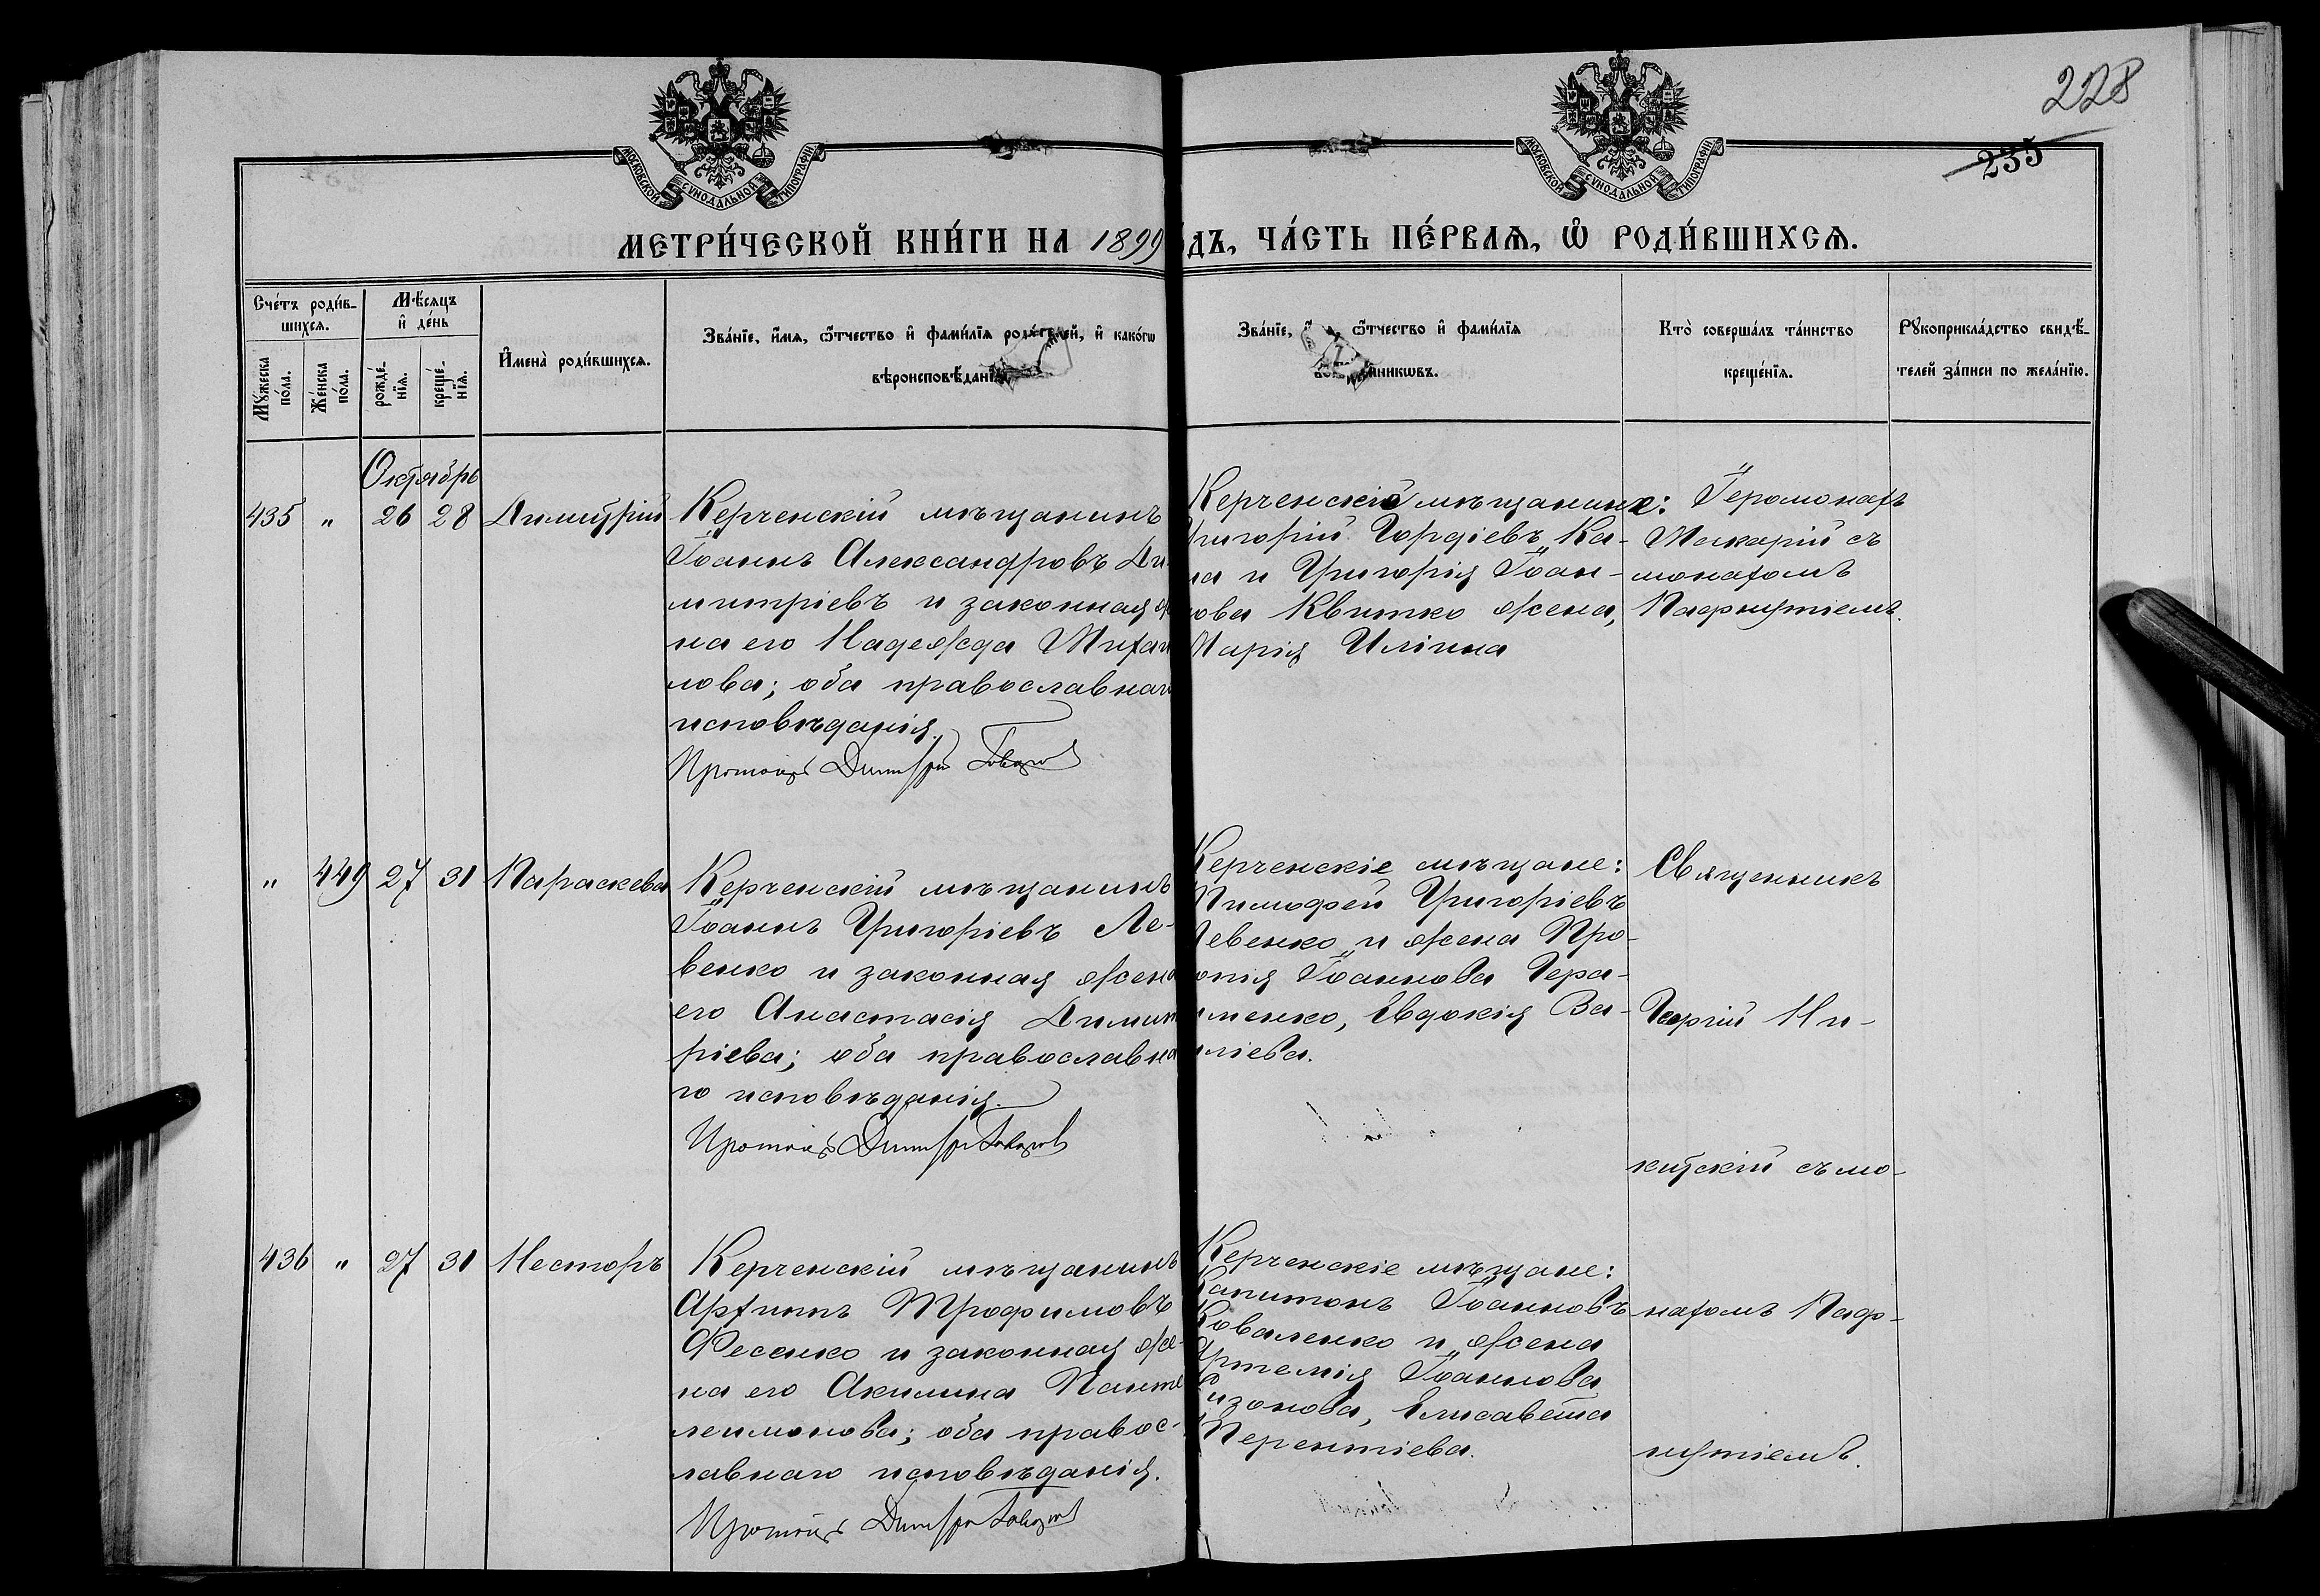 228
235
МОСКОВСКОЙ СѴНОДАЛЬНОЙ ТИПОГРАФІИ
МОСКОВСКОЙ СѴНОДАЛЬНОЙ ТИПОГРАФІИ
МЕТРИ́ЧЕСКОЙ КНИ́ГИ НА 1899 ДЪ, ЧА́СТЬ ПЕ́РВАѦ, Ѡ҆ РОДИ́ВШИХСѦ.
Сче́тъ роди́в-
шихсѧ.
Мꙋ́жеска
по́ла.
Же́нска
по́ла.
Мѣ́сѧцъ
и҆ де́нь
рожде́-
нїѧ.
креще́-
нїѧ.
И҆мена̀ роди́вшихсѧ.
Зва́нїе, и҆́мѧ, ѻ҆́тчество и҆ фами́лїѧ роди́телей, и҆ какогѡ
вѣроисповѣ́данїѧ
Зва́нїе, ѻ҆́тчество и҆ фами́лїѧ
Кто̀ соверша́лъ та́инство
креще́нїѧ.
Рꙋкоприкла́дство свидѣ́-
телей за́писи по жела́нїю.
Октябрь
435 " 26 28 Димитрій
Керченскій мѣщанинъ
Іоаннъ Александровъ Ди-
митріевъ и законная же
на его Надежда Михаи
лова; оба православнаг
исповѣданія.
Протоіер Димитрій
Керченскіе мѣщанин:
Григорій Гордіевъ Ка-
на и Григорія Іоан-
нова Квитко жена,
Марія Иліина
Іеромонахъ
Макарій съ
монахомъ
Пафнутіемъ.
" 449 27 31 Параскева
Керченскій мѣщанинъ
Іоаннъ Григоріевъ Ле-
венко и законная жена
его Анастасія Димит
ріева; оба православна
го исповѣданія.
Протоіер Димитрій
Керченскіе мѣщане:
Тимофей Григоріевъ
Левенко и жена Про-
копія Іоаннова Гера-
именко, Евдокія Ва-
иліева.
Священникъ
Георгій Ни-
китскій съ мо-
нахомъ Паф-
нутіемъ.
436 " 27 31 Несторъ
Керченскій мѣщанинъ
Архиппъ Трофимовъ
Фесенко и законная же-
на его Акилина Панте
леимонова; оба правос-
лавнаго исповѣданія.
Протоіер Димитрій
Керченскіе мѣщане:
Капитонъ Іоанновъ
Коваленко и жена
Артемія Іоаннова
Сизонова, Елисавета
Терентіева.